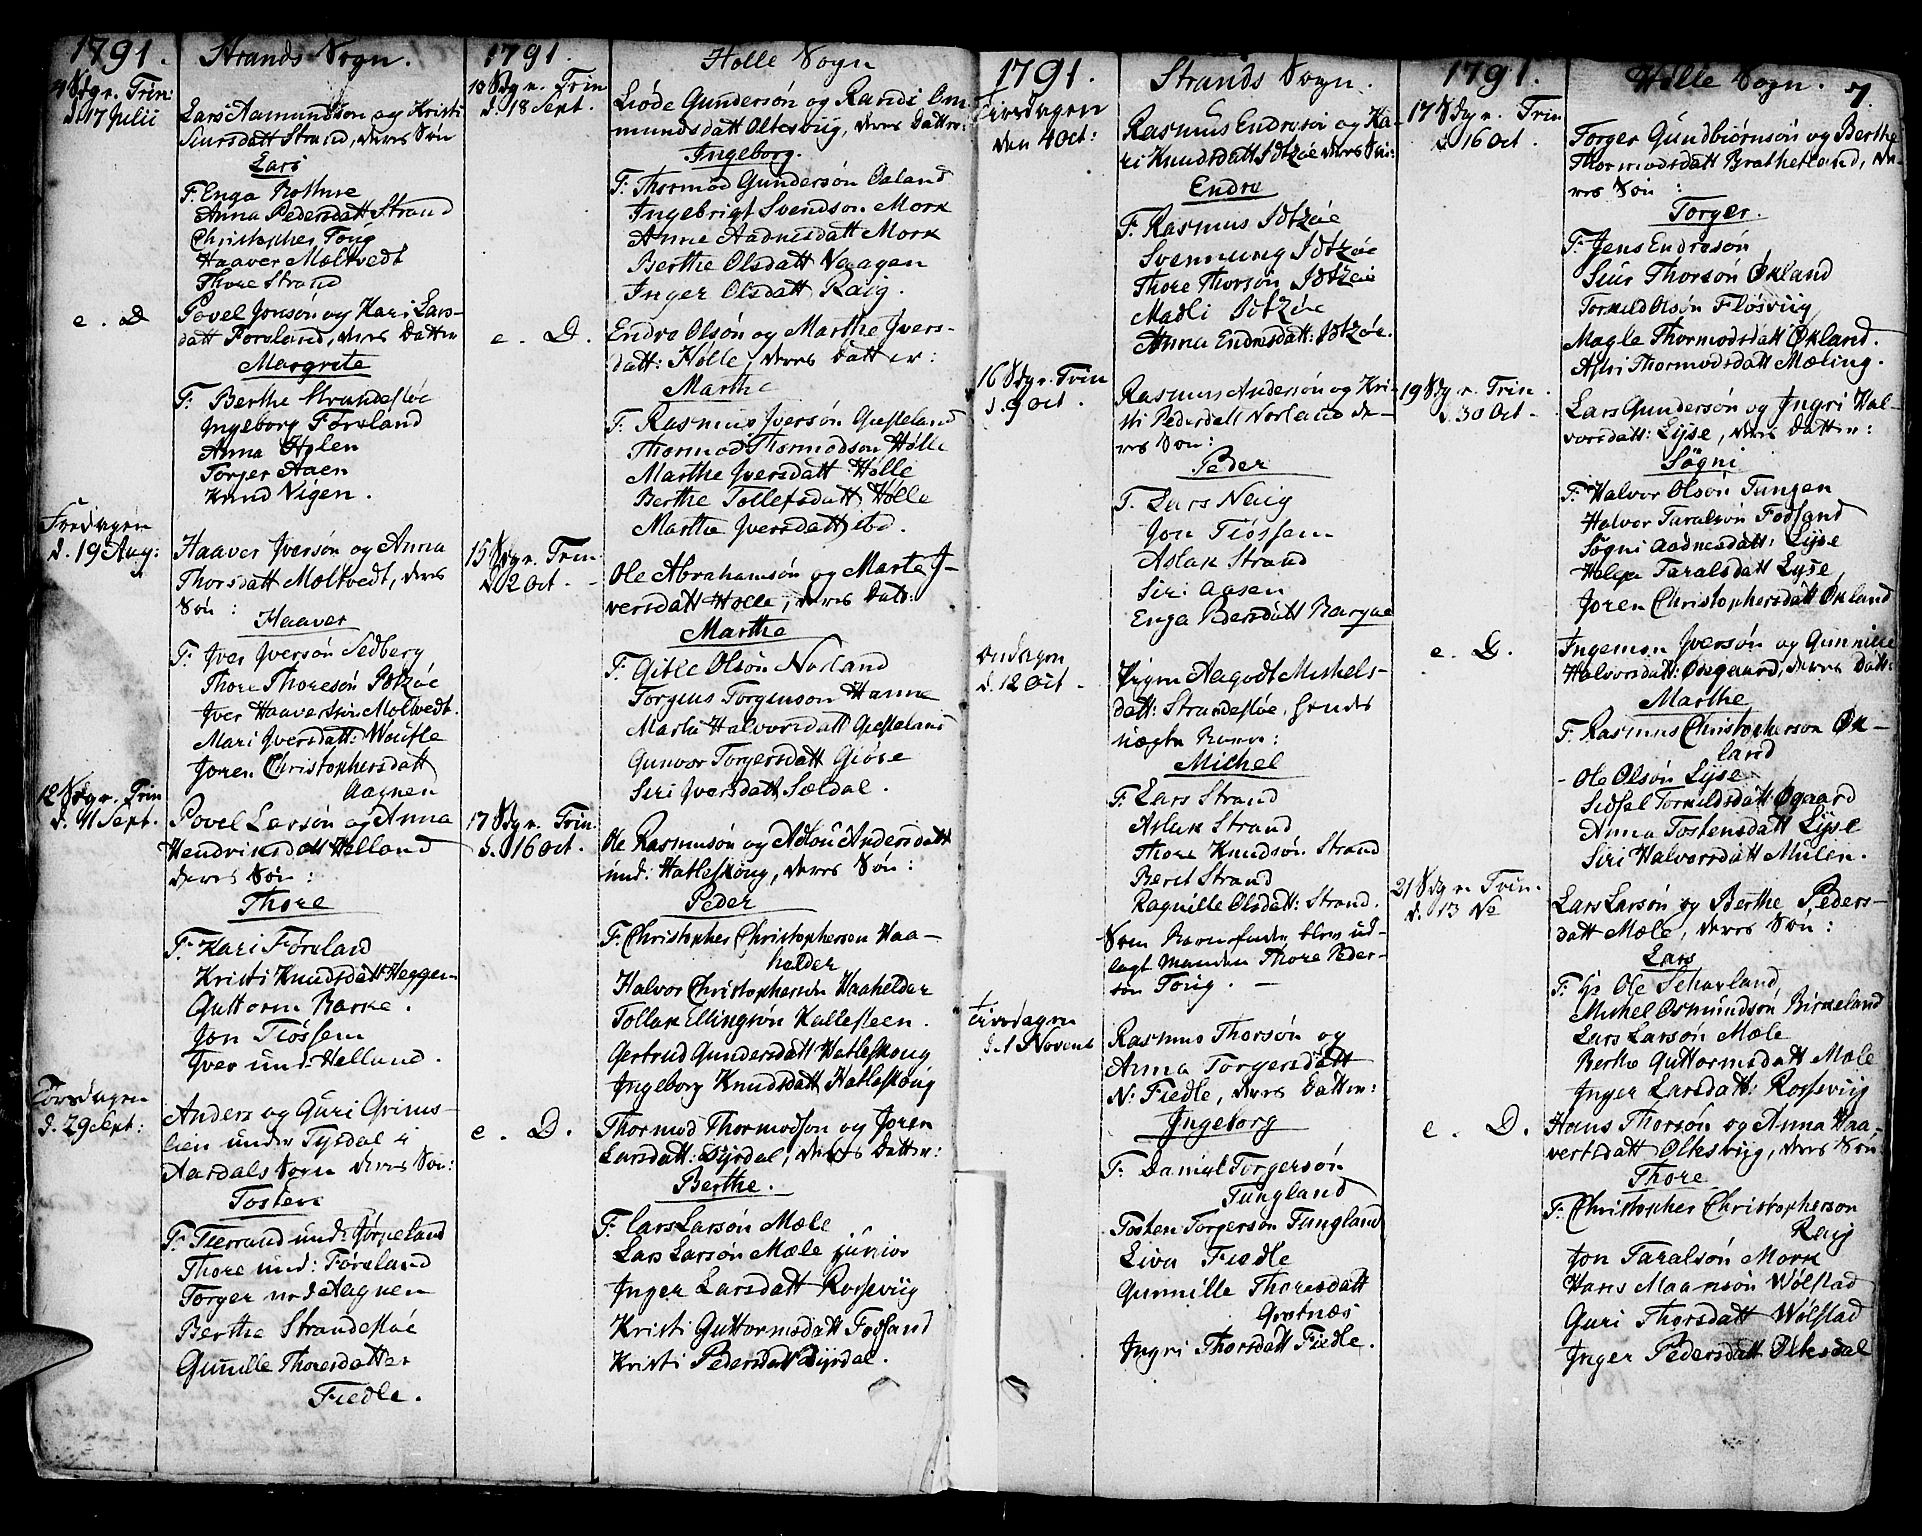 1791.
Strands Sogn.
4 Sdg. e. Trin:
d. 17 Julii
Lars Aamundsøn og Kristi
Siursdatt Strand, deres Søn
Lars
F. Enga Bothne
Anna Pedersdatt Strand
Christopher Toug
Haaver Moltvedt
Thore Strand
e. D
Povel Jonsøn og Kari Lars-
datt Forsland, deres Datter
Margrete
F. Berthe Strandestøe
Ingeborg Førsland
Anna Holen
Torger Aaen
Knud Vigen.
Fredagen
d. 19 Aug:
Haaver Iversøn og Anna
Thorsdatt Moltvedt, deres
Søn:
Haaver
F. Iver Iversøn Sedberg
Thore Thoresøn Idtzøe
Iver Haaversøn Moltvedt.
Mari Iversdatt:
Joren Christophersdatt
Aagnen
12 Sdg. e. Trin
d. 11 Sept.
Povel Larsøn og Anna
Hendriksdatt Helland
deres Søn:
Thore
F. Kari Førsland
Kristi Knudsdatt Heggem
Guttorm Barke.
Jon Tiøssem
Iver und: Helland.
Torsdagen
d. 29 Sept:
Anders og Guri Grims-
lien under Tysdal i
Aardals Sogn deres Søn:
Tosten
F. und: Jørpeland
Thore und: Førsland
Torger Aagnen
Berthe Strandestøe
Gunille Thoresdatter
Fiedle.
1791.
Holle Sogn
13 Sdg. e. Trin
d. 18 Sept.
Liøde Gundersøn og Randi Om-
mundsdatt Oltesviig, deres Datter:
Ingeborg.
F. Thormod Gundersøn Oaland
Ingebrigt Svendson Mork
Anne Aadnesdatt Mork
Berthe Olsdatt Vaagen
Inger Olsdatt Raig.
e. D.
Endre Olsøn og Marthe Ivers-
datt: Hølle, deres Datter:
Marthe
F. Rasmus Iversøn Giesteland
Thormod Thormodson Hølle
Marthe Iversdatt Hølle
Berthe Tollefsdatt Hølle
Marthe Iversdatt ibd.
15 Sdg. e. Trin
d. 2 Oct.
Ole Abrahamsøn og Marte I-
versdatt Hølle, deres Datt:
Marthe
F. Gitle Olsøn Norland
Torgius Torgiuson Hanne
Marthe Halvorsdatt Giesteland
Gunvor Torgersdatt Giøse
Siri Iversdatt Sældal.
17 Sdg. e. Trin.
d. 16 Oct.
Ole Rasmusøn og Adlou Andersdatt
und: Hatleskoug, deres Søn:
Peder
F. Christopher Christopherson Haa-
helder
Halvor Christophersøn Haahelder
Tollak Ellingsøn Kallesteen.
Gertrud Gundersdatt Hatleskoug
Ingeborg Knudsdatt Hatleskoug
e. D.
Thormod Thormodson og Joren
Larsdatt: Dyrdal, deres Datter:
Berthe.
F. Lars Larsøn Mæle
Lars Larsøn Mæle junior
Inger Larsdatt Rosseviig
Kristi Guttormsdatt Fodsand
Kristi Pedersdatt Dyrdal.
1791.
Strands Sogn.
Tiirsdagen
den 4 Oct:
Rasmus Endresøn og Ka-
ri Knudsdatt Idtzøe deres Søn:
Endre
F. Rasmus Idtzøe
Svennung Idtzøe
Thore Thorsøn Idtzøe
Madli Idtzøe
Anna Endresdatt: Idtzøe.
16 Sdg. e. Trin
d. 9 Oct.
Rasmus Andersøn og Kri-
sti Pedersdatt Norland de-
res Søn:
Peder
F. Lars Neuig
Jon Tiøssem
Aslak Strand
Siri Aasen
Enga Pedersdatt Barkae
Onsdagen
d. 12 Oct.
Pigen Aagodt Michels-
datt: Strandestøe, hendes
uægte Barn:
Michel
F. Lars Strand
Aslak Strand
Thore Knudsøn Strand
Berit Strand
Ragnille Olsdatt: Strand.
Som Barnefader blev ud-
lagt Manden Thore Peder-
søn Toug. —
Tiirsdagen
d. 1 Novemb
Rasmus Thorsøn og
Anna Torgersdatt
N: Fiedle, deres Datter:
Ingeborg
F. Daniel Torgersøn
Tungland
Tosten Torgerson Tungland
Liva Fiedle
Gunnille Thoresdatt
Grotnæs
Ingri Thorsdatt Fiedle.
1791.
Hølle Sogn.
7.
17 Sdg. e. Trin.
d. 16 Oct.
Torger Gundbiørnsøn og Berthe
Thormodsdatt Bratheland, de-
res Søn:
Torger.
F. Jens Endresøn
Siur Thorsøn Økland
Torkild Olsøn Fløsviig
Magle Thormodsdatt Økland.
Assri Thormodsdatt Mæling.
19 Sdg. e. Trin.
d. 30 Oct.
Lars Gundersøn og Ingri Hal-
vorsdatt: Lyse, deres Datter:
Søgni
F. Halvor Olsøn Tungen
Halvor Taralsøn Fodsand
Søgni Aadnesdatt: Lyse
Helga Taralsdatt Lyse
Joren Christophersdatt Økland
e. D.
Ingemon Iversøn og Gunnille
Halvorsdatt: Øvegaard, deres Datt:
Marthe
F. Rasmus Christopherson Øk-
land
Ole Olsøn Lyse
Sidsel Torkildsdatt: Øgaard
Anna Tostensdatt Lyse
Siri Halvorsdatt Mulen.
21 Sdg. e. Trin.
d. 13 No
Lars Larsøn og Berthe Peders-
datt Mæle, deres Søn:
Lars
F. Hr Ole Schavland
Michel Osmundsøn Birkeland
Lars Larsøn Mæle
Berthe Guttormsdatt Mæle
Inger Larsdatt: Rossviig
e. D.
Hans Thorsøn og Anna Haa-
versdatt Oltesviig, deres Søn
Thore
F. Christopher Christopherson
Raig
Jon Taralsøn Mork
Hans Maansøn Wølstad
Guri Thorsdatt Wølstad
Inger Pedersdatt Øiksdal